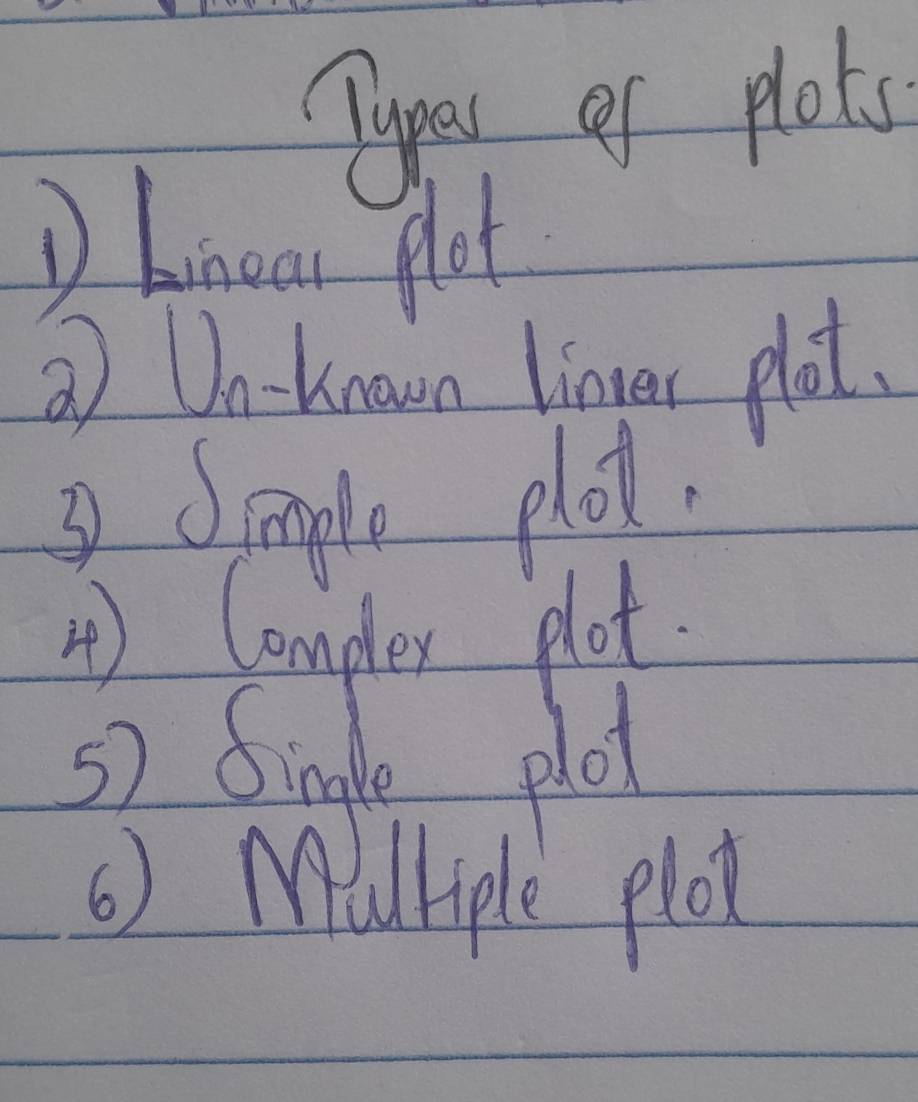 Types of plots.
1) Linear plot.
2) Un-known linear plot.
3) Simple plot.
4) Complex plot.
5) Single plot
6) Multiple plot